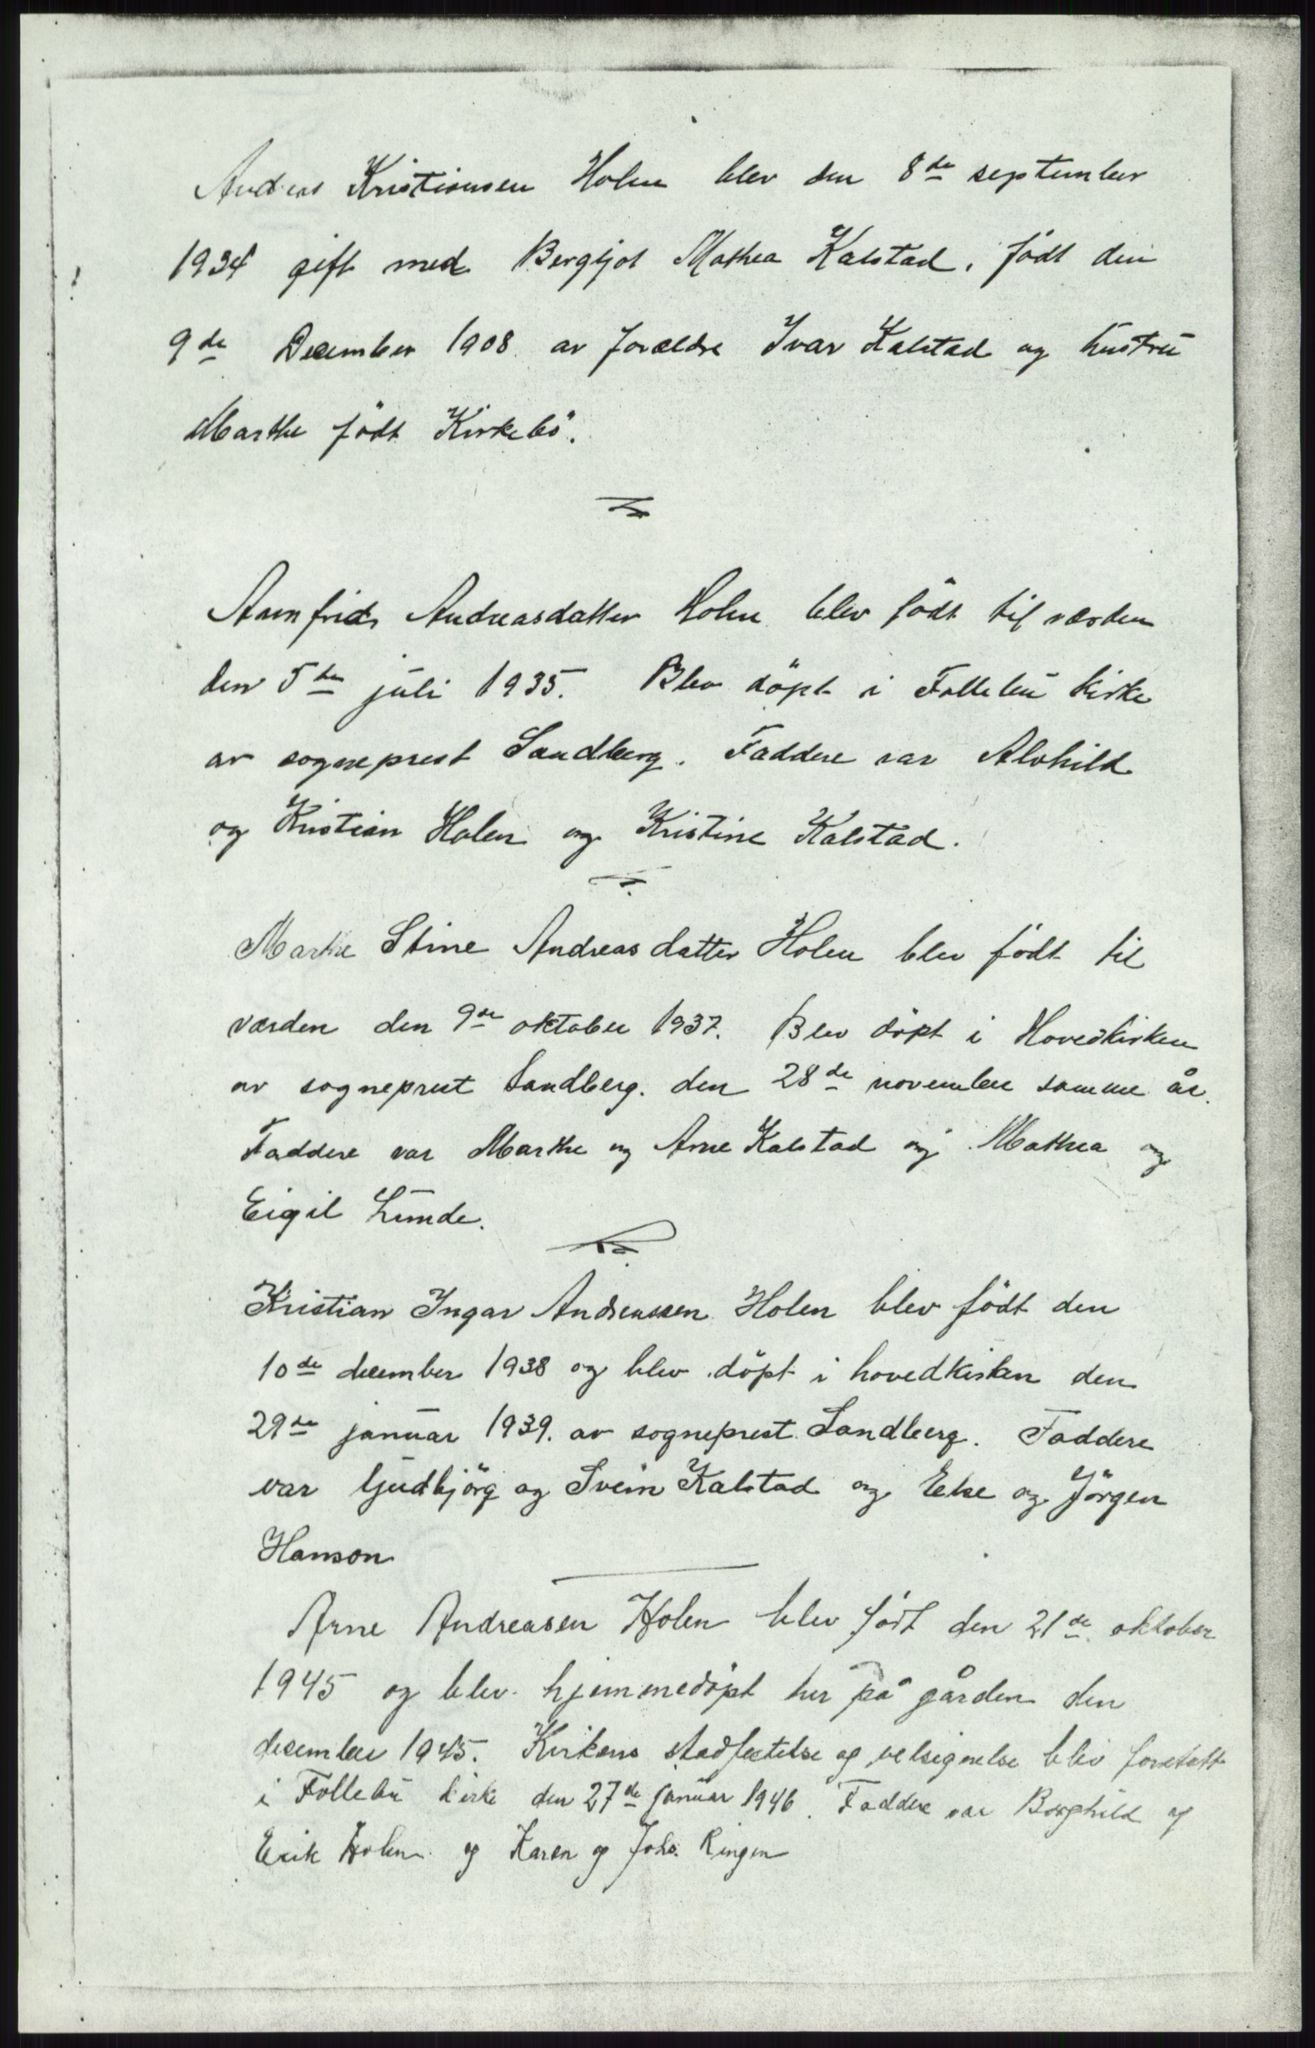 Andreas Kristiansen Holen blev den 8de september
1934 gift med Bergljot Mathea Kalstad, födt den
9de December 1908 av foreldre Ivar Kalstad og hustru
Marthe födt Kirkebö.
Arnfrid Andreasdatter Holen blev födt til verden
den 5te juli 1935. Blev döpt i Follebu kirke
av sogneprest Sandberg. Faddere var Alvhild
og Kristian Holen og Kristine Kalstad.
Marthe Stine Andreasdatter Holen blev födt til
verden den 9de oktober 1937. Blev döpt i Hovedkirken
av sogneprest Sandberg. den 28de november samme år.
Faddere var Marthe og Arne Kalstad og Mathea og
Eigil Lunde.
Kristian Ingar Andreassen Holen blev födt den
10de december 1938 og blev döpt i hovedkirken den
29de januar 1939. av sogneprest Sandberg. Faddere
var Gudbjörg og Svein Kalstad og Else og Jörgen
Hanson
Arne Andreasen Holen blev födt den 21de oktober
1945 og blev hjemmedöpt her på gården den
december 1945. Kirkens stadfestelse og velsignelse blev foretatt
i Follebu kirke den 27de januar 1946. Faddere var Borghild og
Erik Holen og Karen og Johs. Ringen